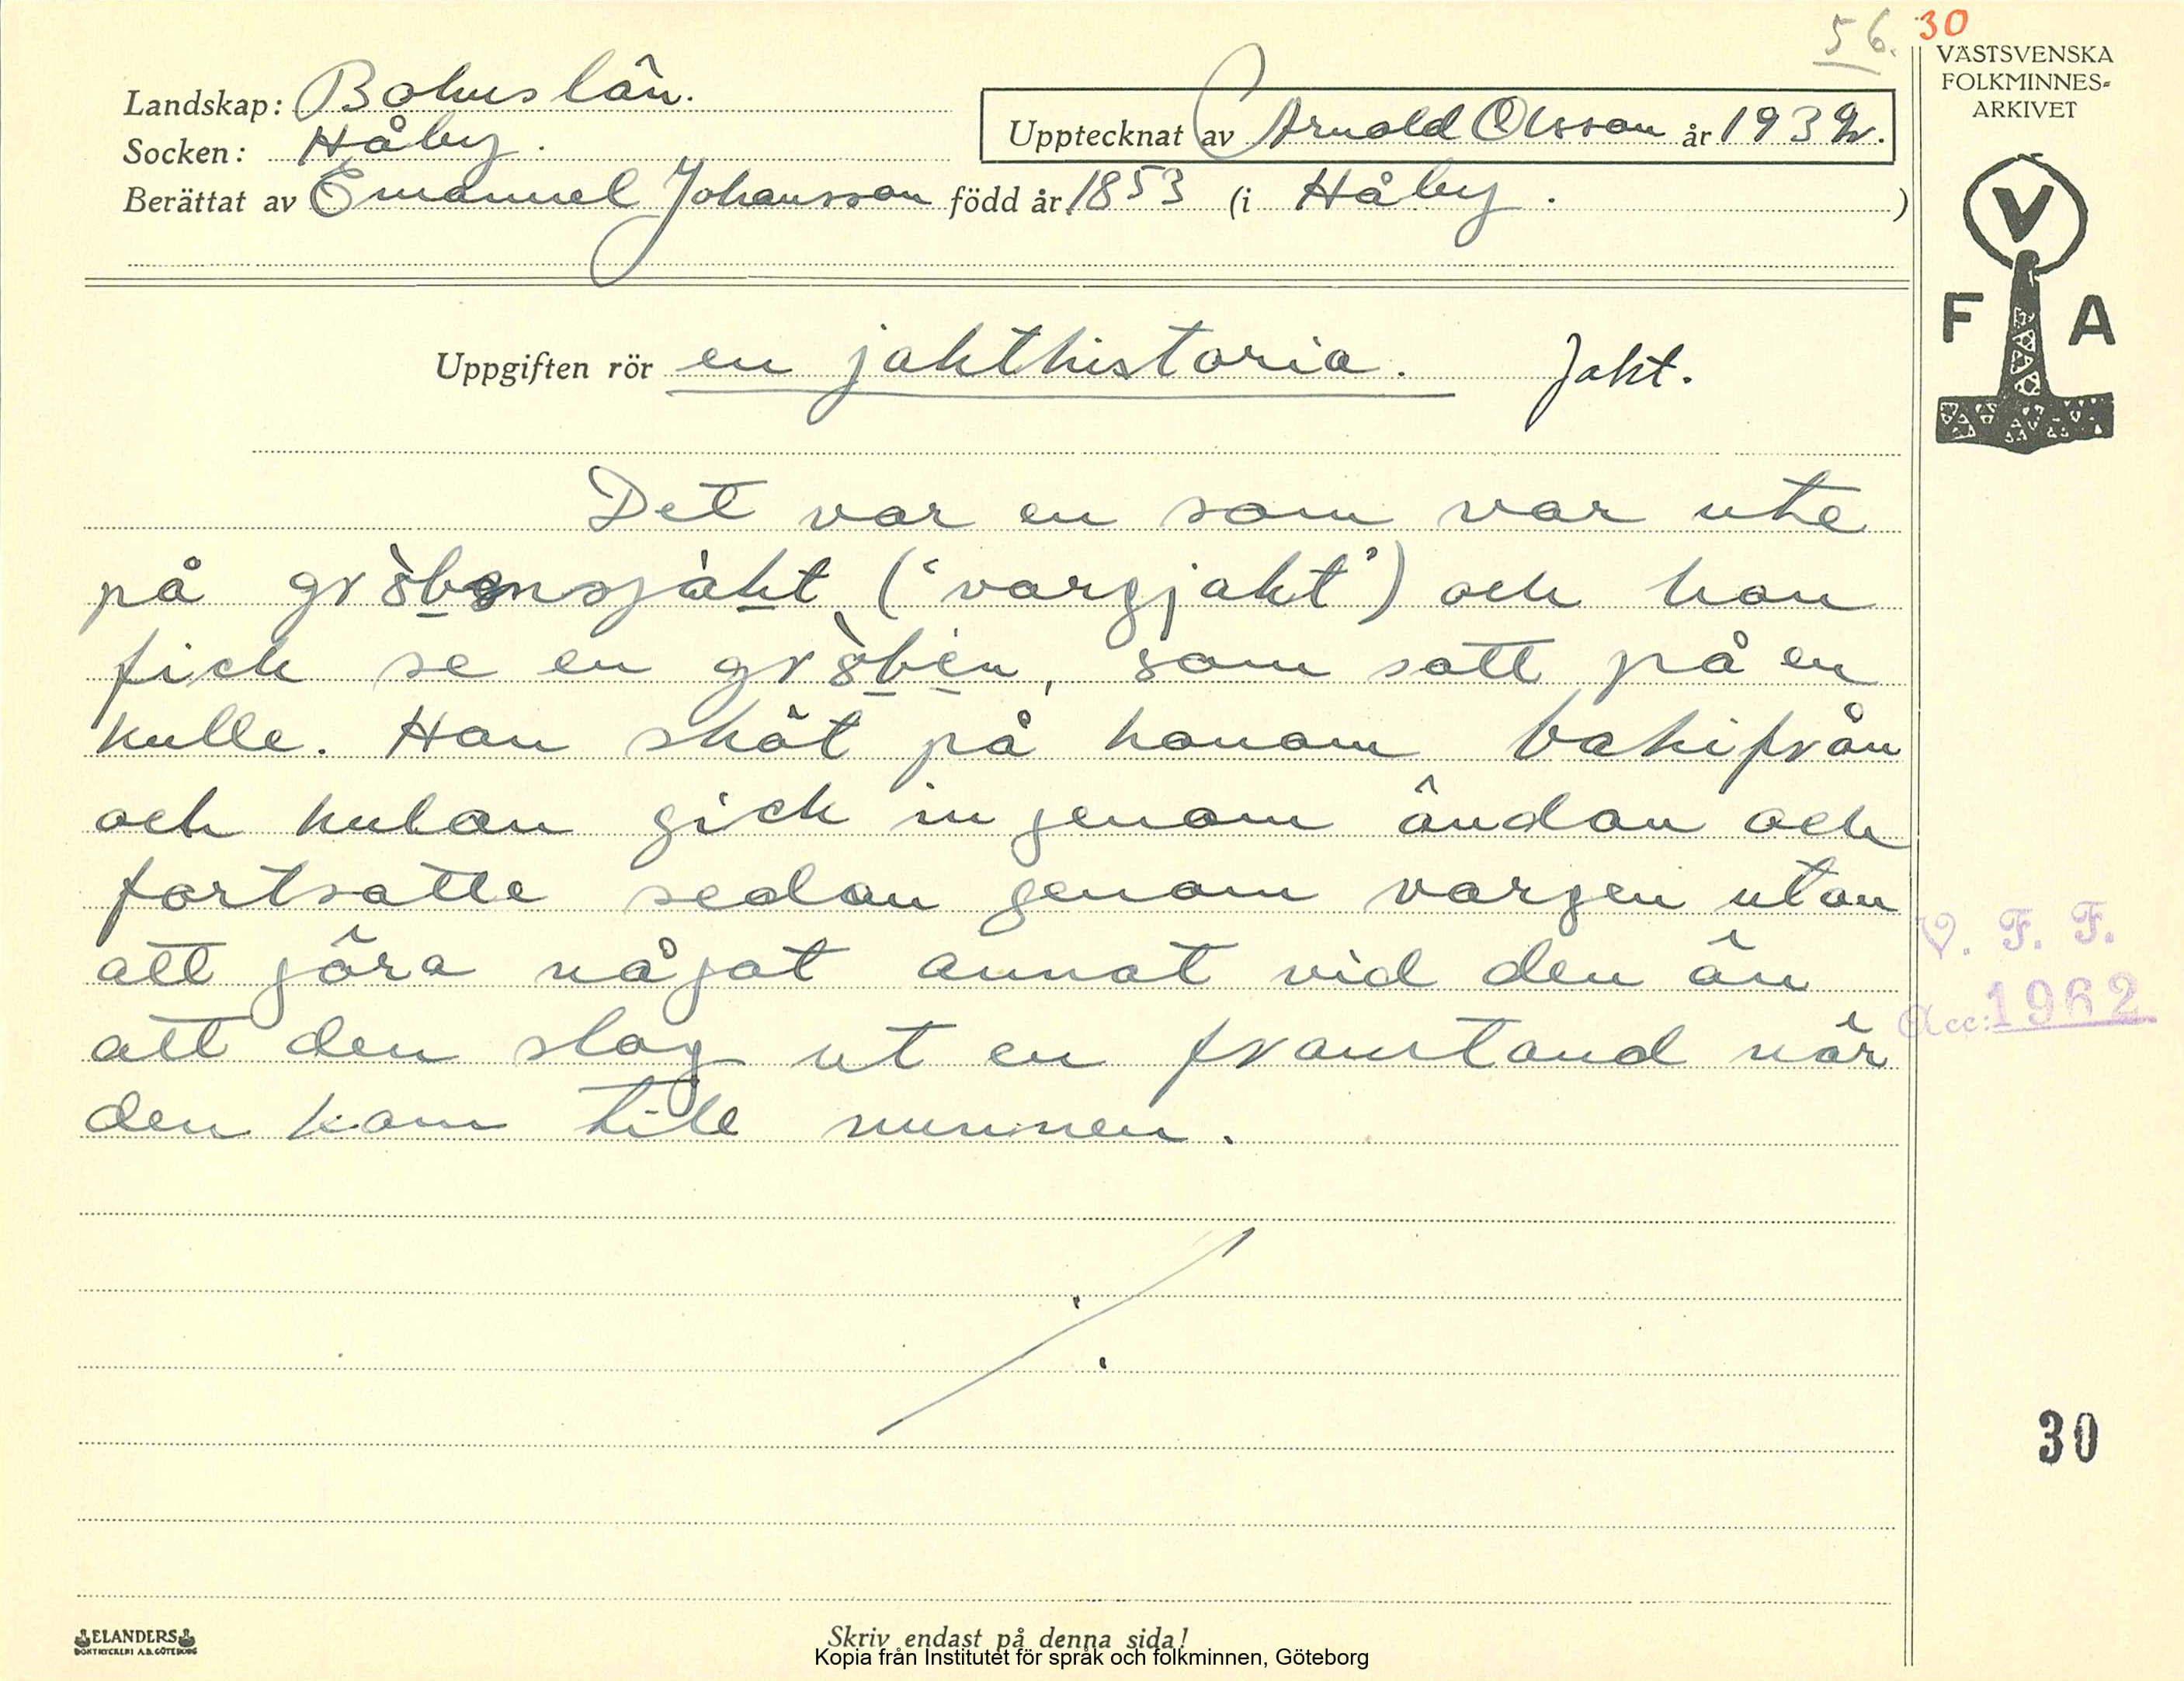 56. 30
VÄSTSVENSKA
FOLKMINNES-
ARKIVET
Landskap: Bohuslän.
Upptecknat av Arnold Olsson år 1932.
Socken: Håby.
Berättat av Emanuel Johansson född år 1853 (i Håby.)
V
F A
Uppgiften rör en jakthistoria. Jakt.
Det var en som var ute
på gròbensjàkt (‘vargjakt’) och han
fick se en gròben, som satt på en
kulle. Han sköt på honom bakifrån
och kulan gick in genom ändan och
fortsatte sedan genom vargen utan
att göra något annat vid den än
att den slog ut en framtand när
den kom till munnen.
V. F. F.
Acc: 1962
30
ELANDERS
BOKTRYCKERI A.B. GÖTEBORG
Skriv endast på denna sida!
Kopia från Institutet för språk och folkminnen, Göteborg